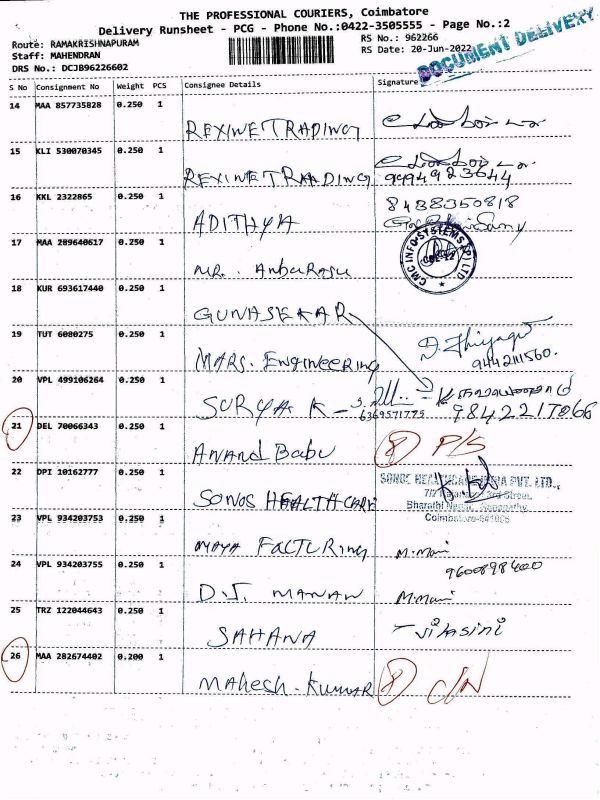 THE PROFESSIONAL COURIERS, Coimbatore
Delivery Runsheet - PCG - Phone No.:0422-3505555 - Page No.:2
Route: RAMAKRISHNAPURAM
RS No.: 962266
Staff: MAHENDRAN
RS Date: 20-Jun-2022
DRS No.: DCJB96226602
DOCUMENT DELIVERY
S No Consignment No Weight PCS Consignee Details Signature
14 MAA 857735828 0.250 1
REXINE TRADING
15 KLI 530070345 0.250 1
REXINE TRAADING 9494923644
16 KKL 2322865 0.250 1 8438350818
ADITHYA
17 MAA 289640617 0.250 1
CMC INFO SYSTEMS (P) LTD
MR. Anburasu
18 KUR 693617440 0.250 1
GUNASEKAR
19 TUT 6080275 0.250 1
9442111560.
MARS. Engineering
20 VPL 499106264 0.250 1
SURYA K - 6369571775 9842217066
21 DEL 70066343 0.250 1
Anand Babu 8 P/S
22 DPI 10162777 0.250 1
Bharathi Nagar,
Coimbatore-641006
SONOS HEALTH CARE
23 VPL 934203753 0.250 1
MAYA FACTURING M. Mani
24 VPL 934203755 0.250 1 9600898400
D.J. MANAN M. Mani
25 TRZ 122044643 0.250 1
SAHANA - vilasini
26 MAA 282674402 0.200 1
Mahesh. Kumar 8 C/N